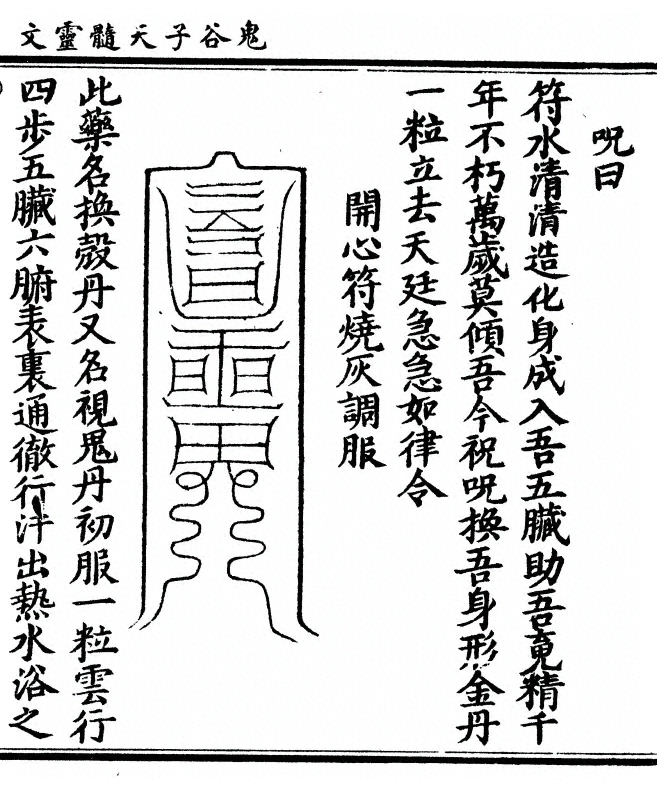 鬼谷子天髓靈文
呪曰
符水清清造化身成入吾五臟助吾竟精千
年不朽萬歲莫傾吾今祝呪換吾身形金丹
一粒立去天廷急急如律令
開心符燒灰調服
此藥名換殼丹又名視鬼丹初服一粒雲行
四步五臟六腑表裏通徹行汗出熱水浴之